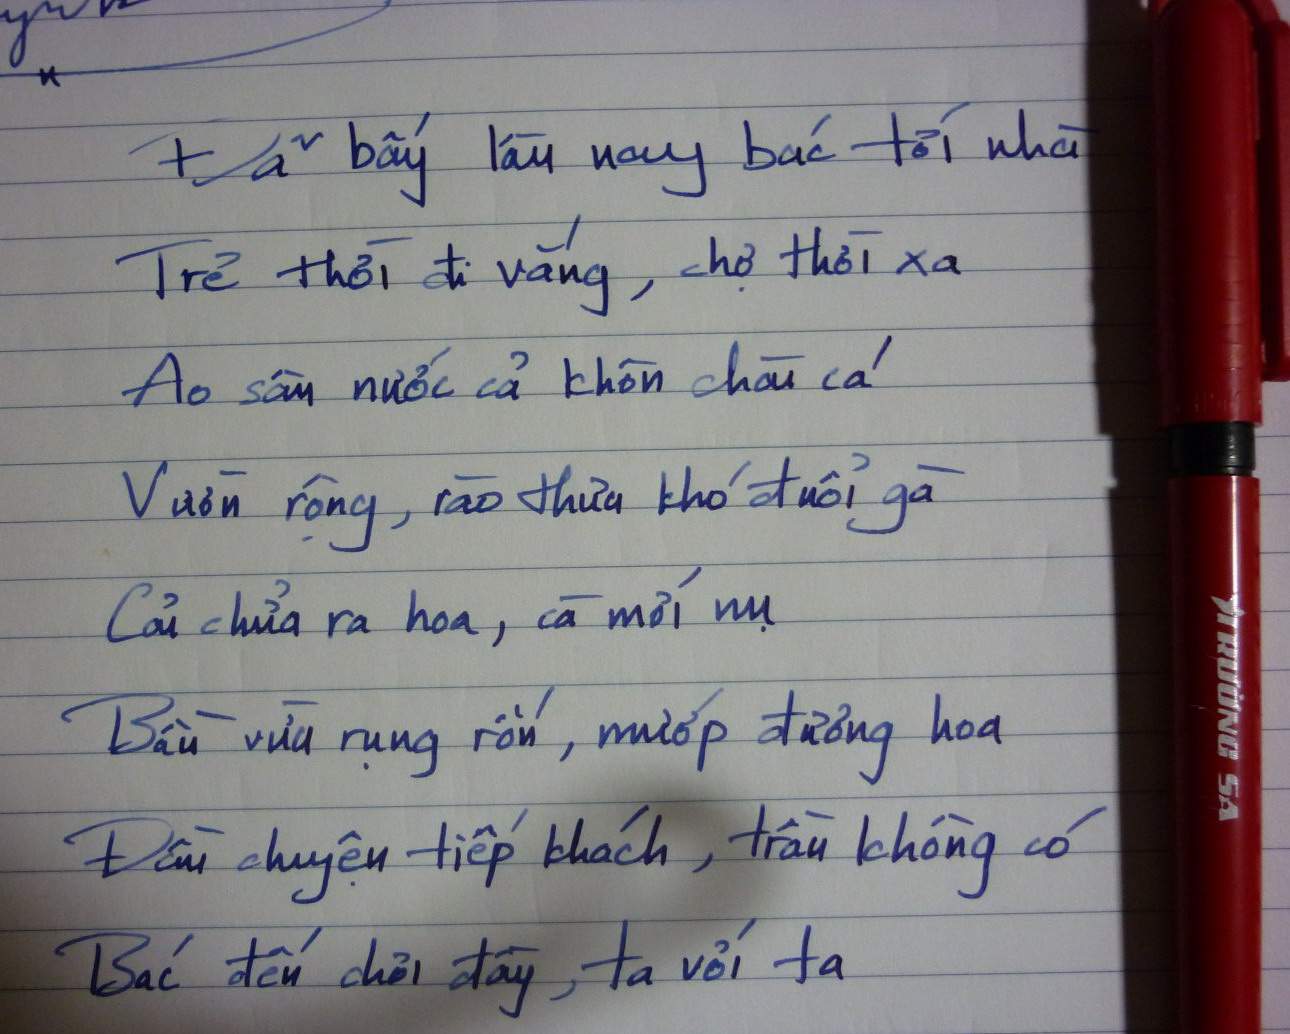 Đã bấy lâu nay bác tới nhà
Trẻ thời đi vắng, chợ thời xa
Ao sâu nước cả khôn chài cá
Vườn rộng, rào thưa khó đuổi gà
Cải chửa ra hoa, cà mới nụ
Bầu vừa rụng rốn, mướp đương hoa
Đầu chuyện tiếp khách, trầu không có
Bác đến chơi đây, ta với ta
TRƯỜNG SA